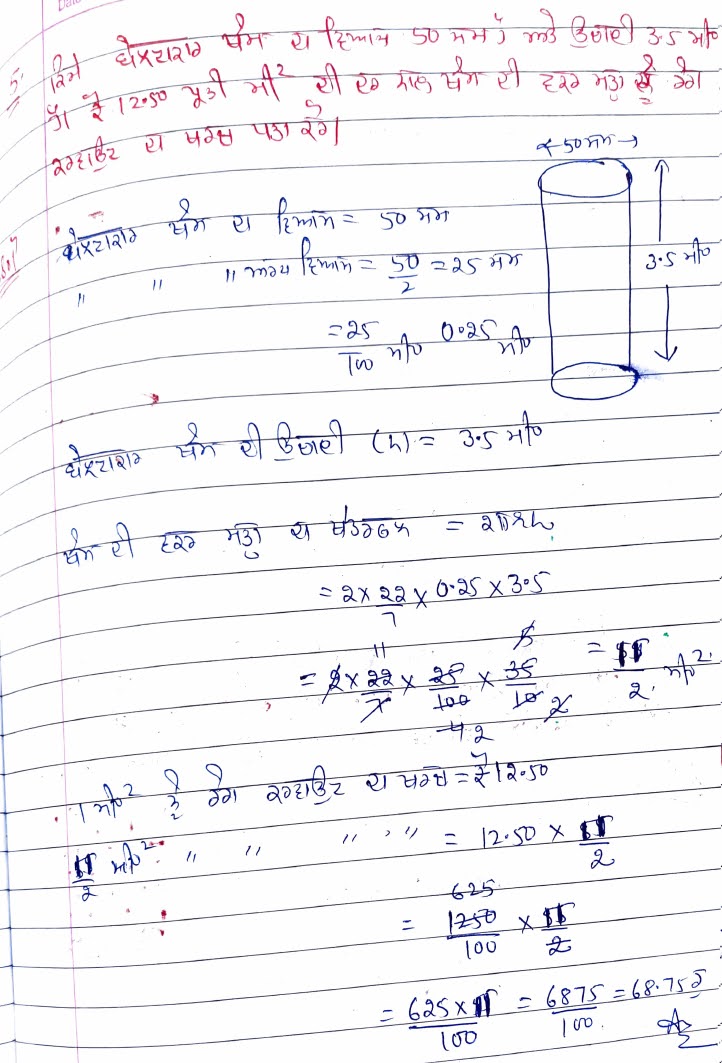 5. ਕਿਸੇ ਬੇਲਨਾਕਾਰ ਥੰਮ ਦਾ ਵਿਆਸ 50 ਸਮ ਅਤੇ ਉਚਾਈ 3.5 ਮੀ०
ਹੈ। ₹12.50 ਪ੍ਰਤੀ ਮੀ² ਦੀ ਦਰ ਨਾਲ ਥੰਮ ਦੀ ਵਕਰ ਸਤ੍ਹਾ ਨੂੰ ਰੰਗ
ਕਰਵਾਉਣ ਦਾ ਖਰਚ ਪਤਾ ਕਰੋ।
← 50 ਸਮ →
ਬੇਲਨਾਕਾਰ ਥੰਮ ਦਾ ਵਿਆਸ = 50 ਸਮ
" " " ਅਰਧ ਵਿਆਸ = 50/2 = 25 ਸਮ
3.5 ਮੀ०
= 25/100 ਮੀ० 0.25 ਮੀ०
ਬੇਲਨਾਕਾਰ ਥੰਮ ਦੀ ਉਚਾਈ (h) = 3.5 ਮੀ०
ਥੰਮ ਦੀ ਵਕਰ ਸਤ੍ਹਾ ਦਾ ਖੇਤਰਫਲ = 2πrh
= 2 × 22/7 × 0.25 × 3.5
11 5
= 2 × 22/7 × 25/100 × 35/10 2 = 11/2 ਮੀ०².
4 2
1 ਮੀ०² ਨੂੰ ਰੰਗ ਕਰਵਾਉਣ ਦਾ ਖਰਚ = ₹12.50
11/2 ਮੀ०² " " " " " = 12.50 × 11/2
625
= 1250/100 × 11/2
= 625 × 11/100 = 6875/100. = 68.75 ਰੁ